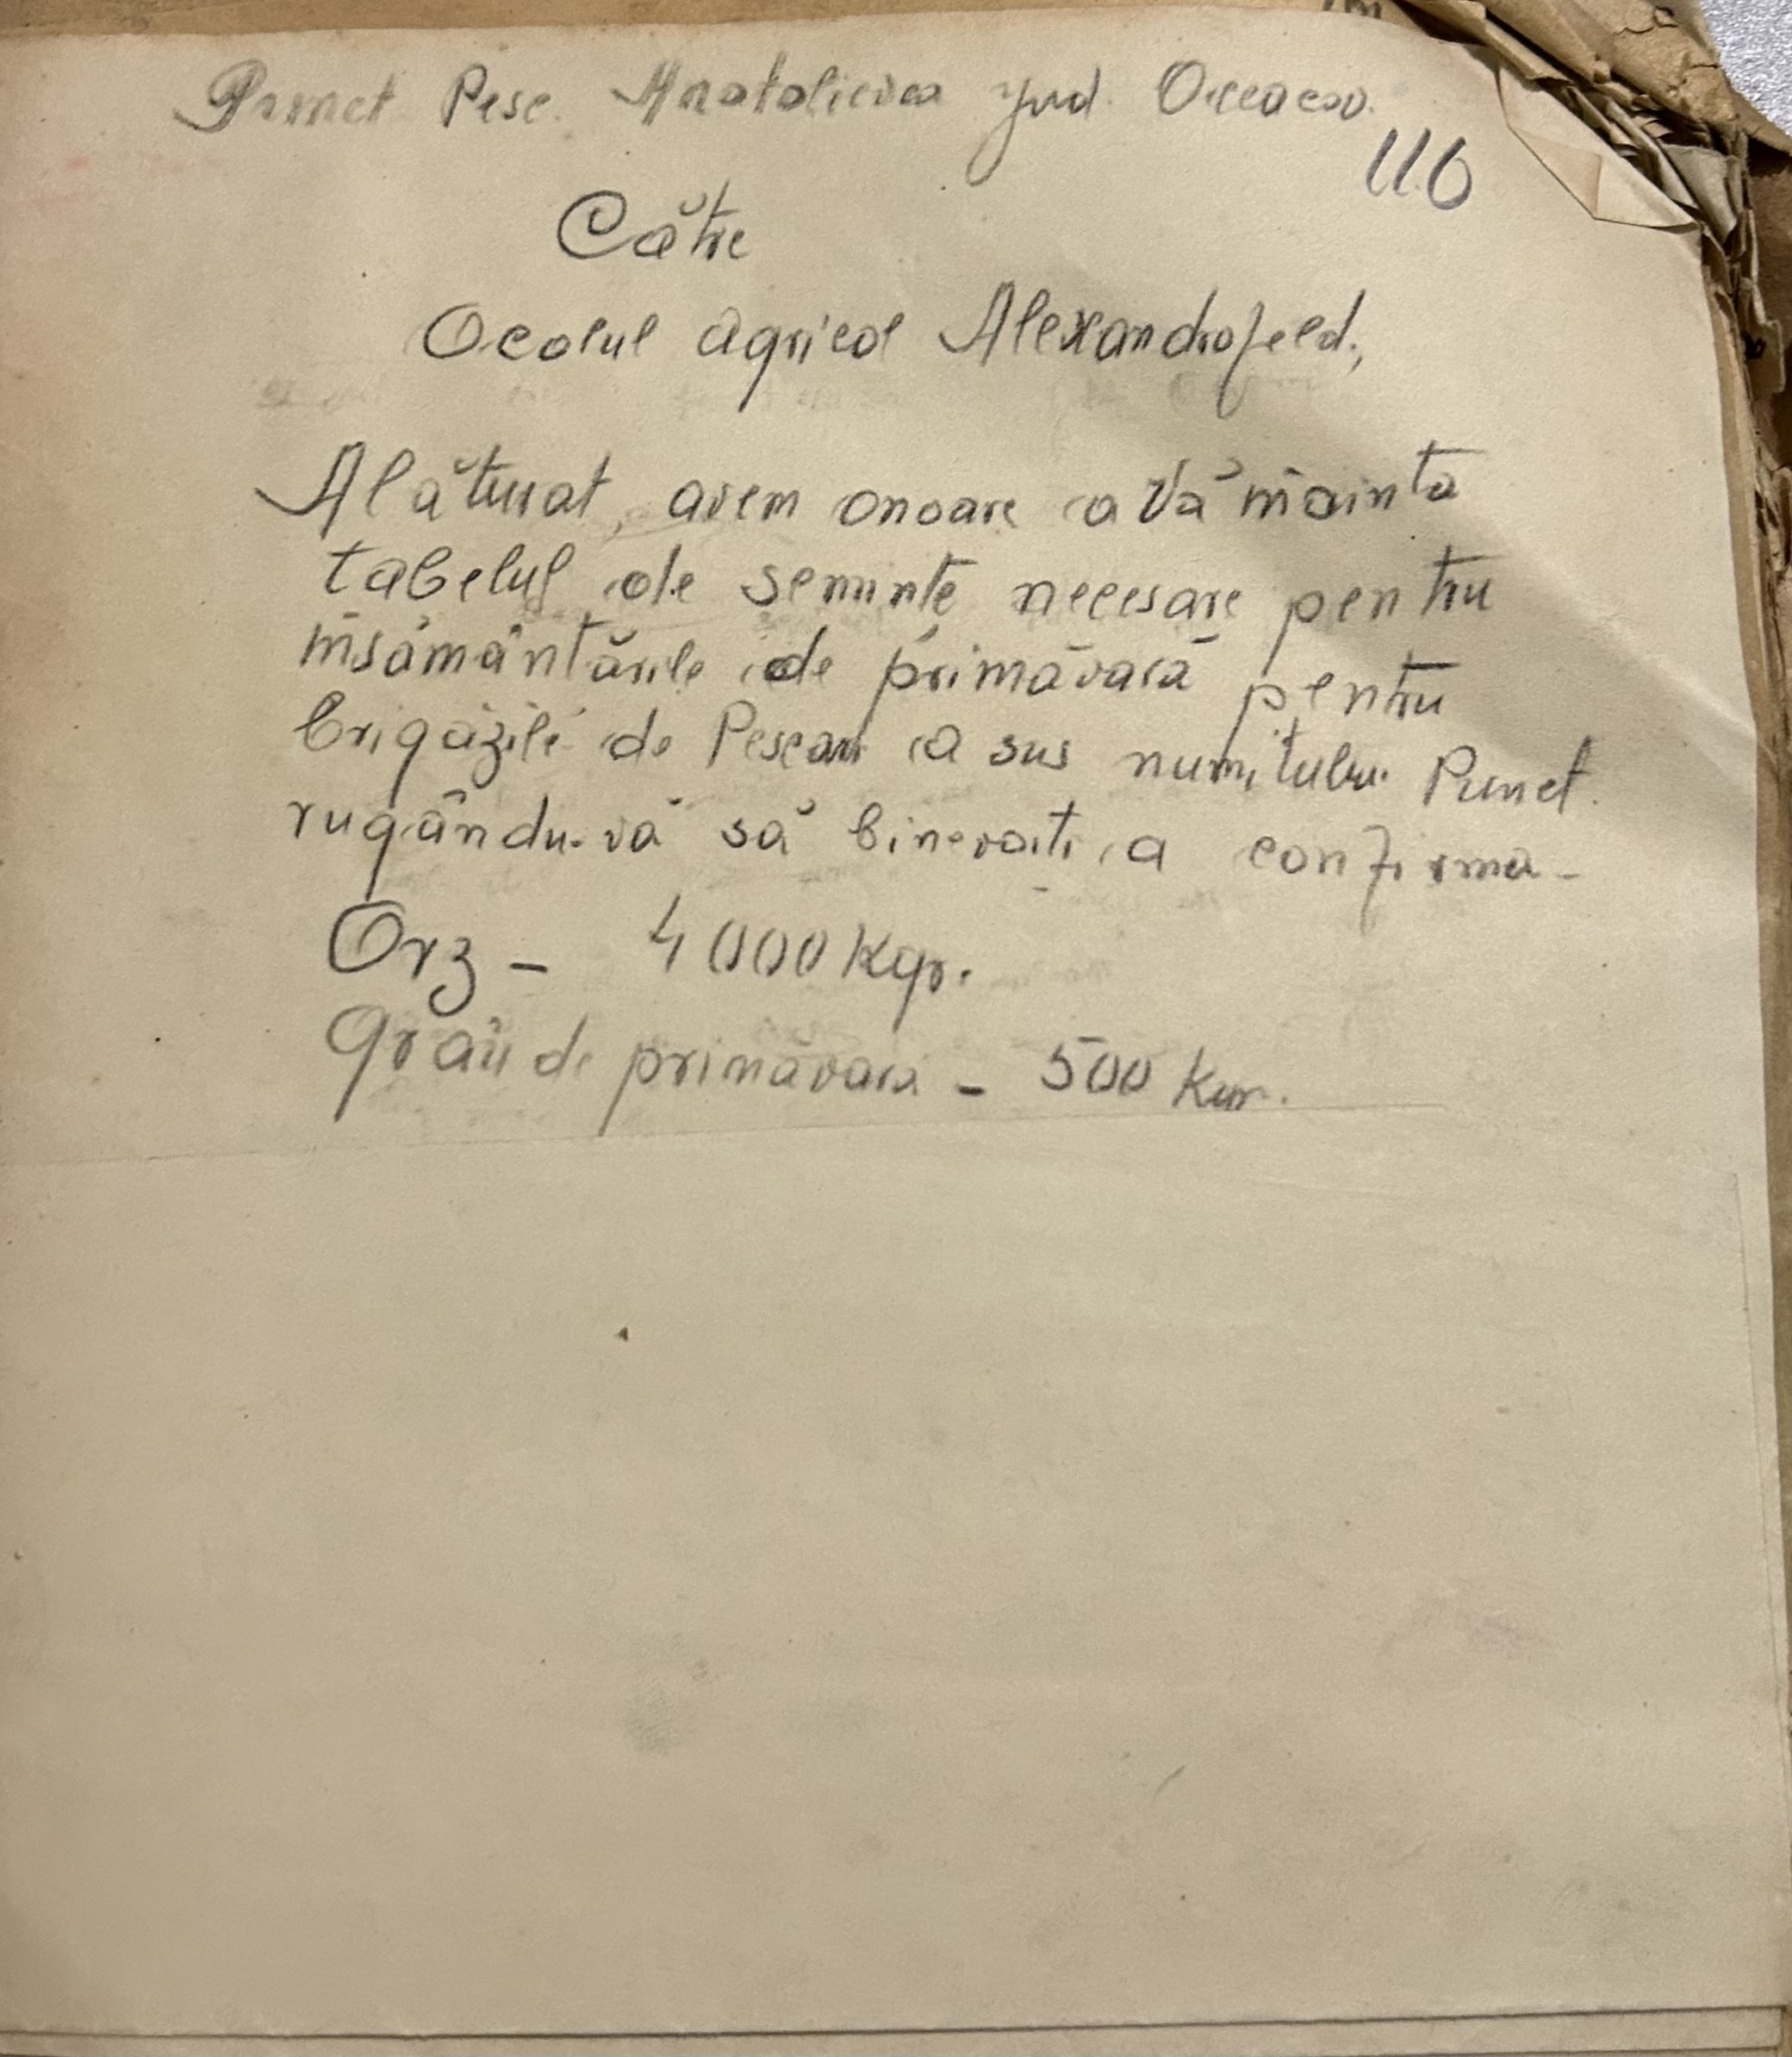 Punct Pesc. Anatolievca jud. Oceacov.
110
Către
Ocolul Agricol Alexandrofeld,
Alăturat, avem onoare a Vă înainta
tabelul de seminte necesare pentru
însământările de primăvară pentru
brigăzile de Pescari a sus numitului Punct
rugându-vă să binevoiti a confirma -
Orz - 4000 Kgr.
Grâu de primăvară - 500 Kgr.